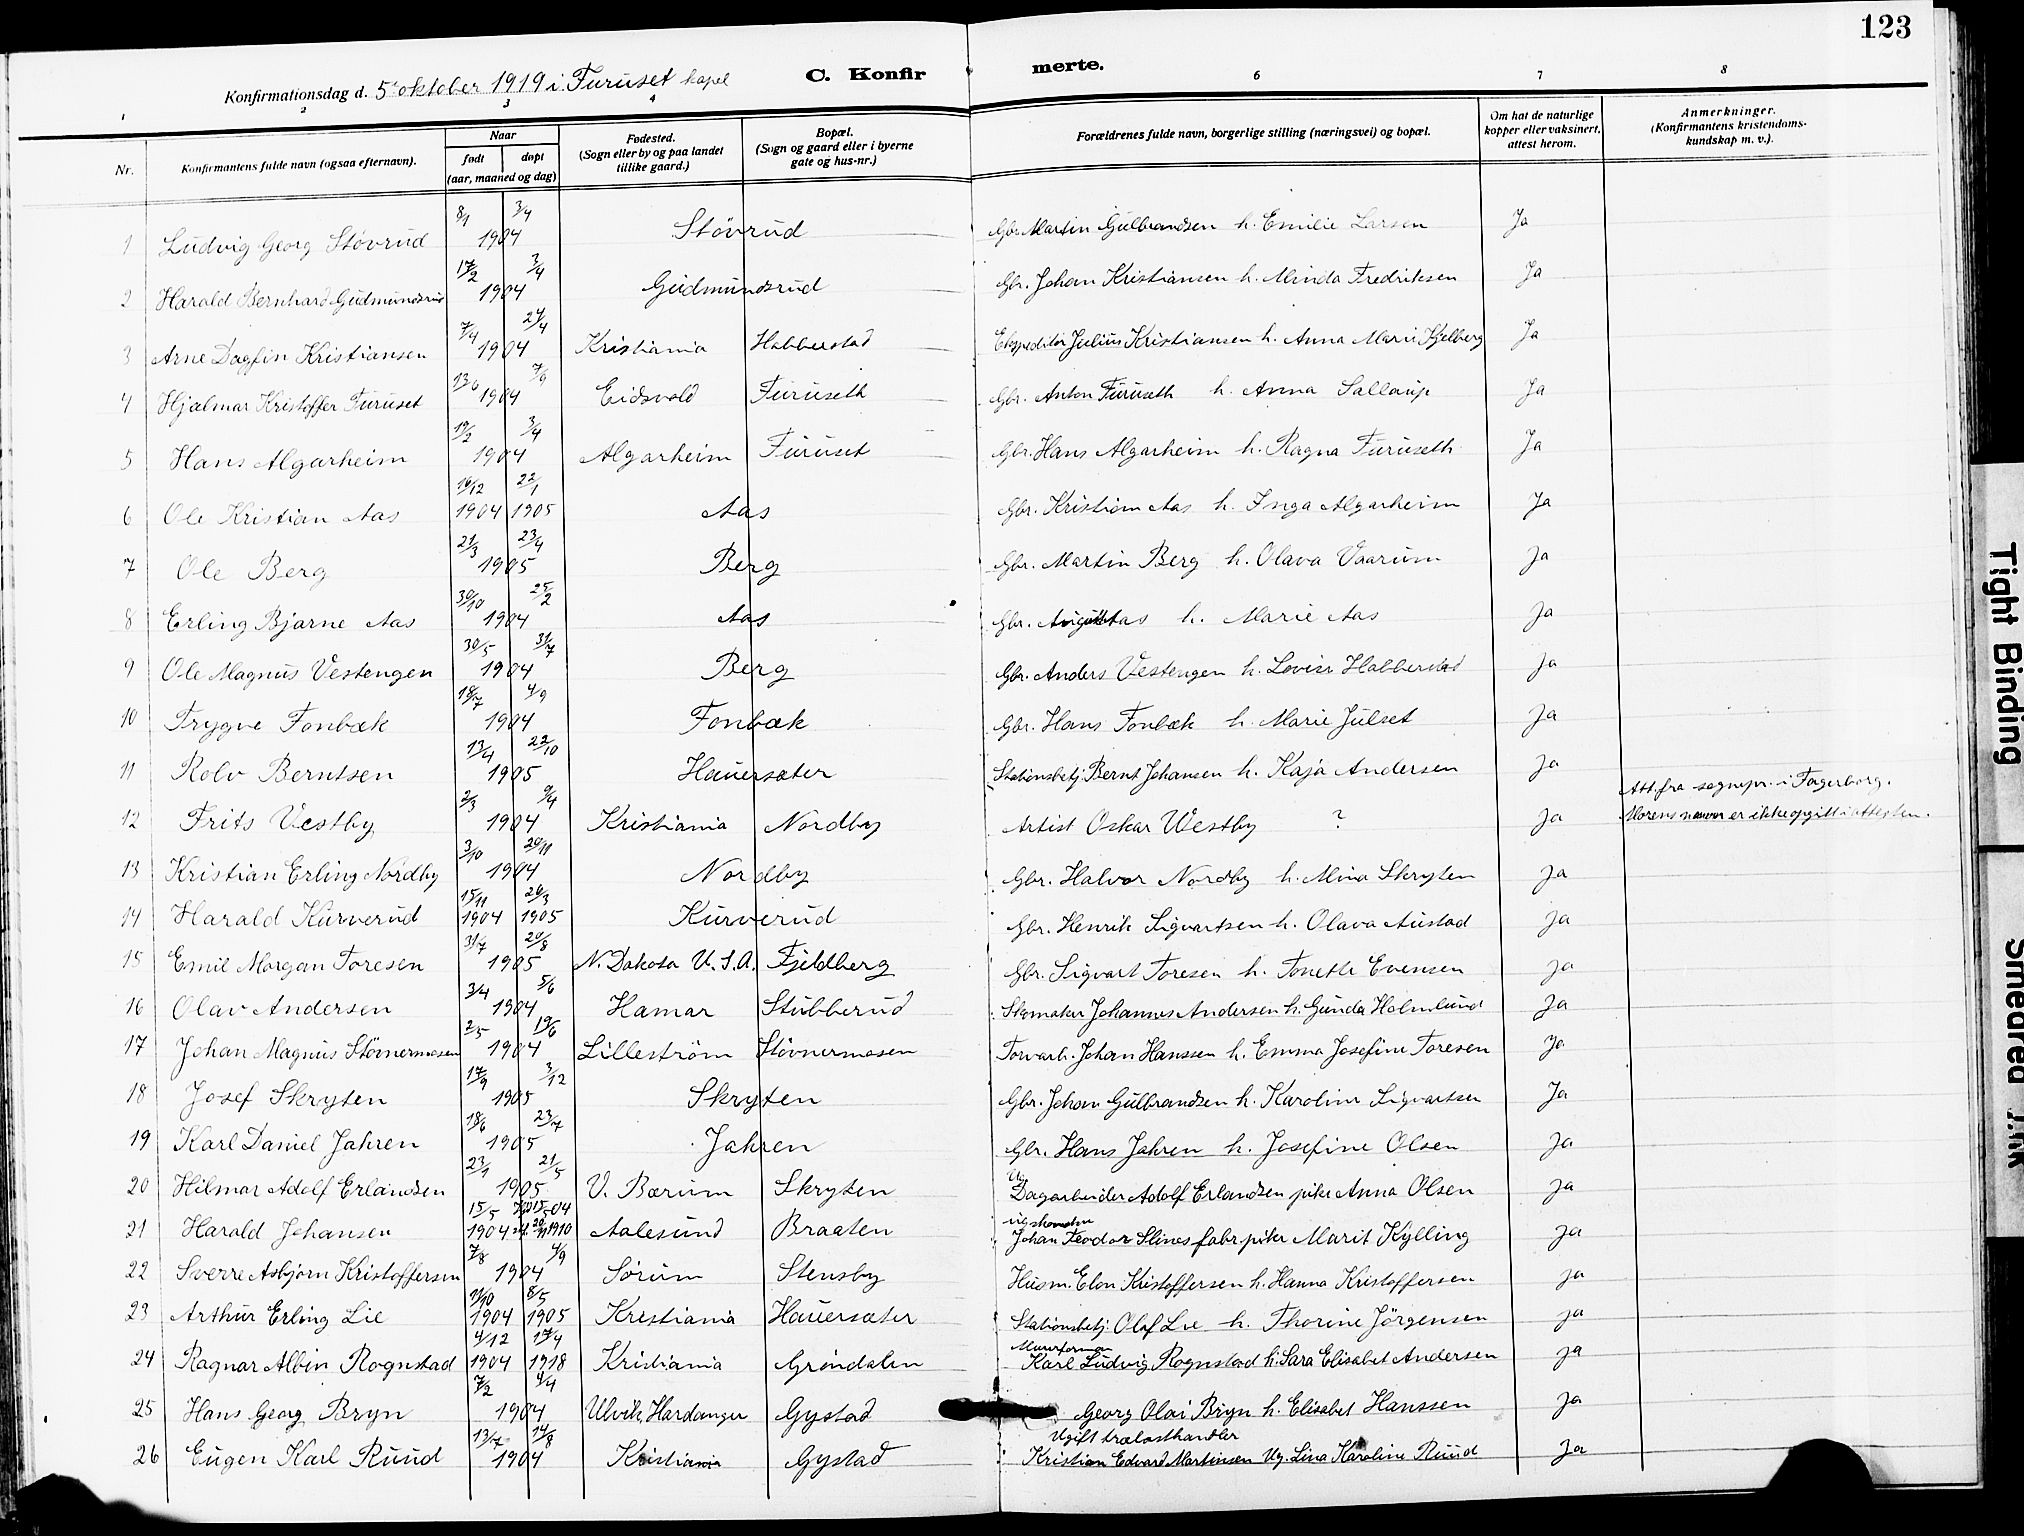 123
Konfirmationsdag d. 5te oktober 1919 i Furuset kapel
C. Konfirmerte.
1 2 3 4 6 7 8
Nr. Konfirmantens fulde navn (ogsaa efternavn). Naar født døpt (aar, maaned og dag) Fødested. (Sogn eller by og paa landet tillike gaard.) Bopæl. (Sogn og gaard eller i byerne gate og hus-nr.) Forældrenes fulde navn, borgerlige stilling (næringsvei) og bopæl. Om hat de naturlige kopper eller vaksinert, attest herom. Anmerkninger. (Konfirmantens kristendoms-kundskap m. v.).
1 Ludvig Georg Støvrud 8/1 3/4 1904 Støvrud Gbr. Martin Gulbrandsen h. Emilie Larsen Ja
2 Harald Bernhard Gudmundsrud 17/2 3/4 1904 Gudmundsrud Gbr. Johan Kristiansen h. Minda Fredriksen Ja
3 Arne Dagfin Kristiansen 7/4 24/4 1904 Kristiania Habberstad Ekspeditør Julius Kristiansen h. Anna Marie Kjelberg Ja
4 Hjalmar Kristoffer Furuset 13/6 7/9 1904 Eidsvold Furuseth Gbr. Anton Furuseth h. Anna Sallaup Ja
5 Hans Algarheim 19/2 3/4 1904 Algarheim Furuset Gbr. Hans Algarheim h. Ragna Furuseth Ja
6 Ole Kristian Aas 16/12 22/1 1904 1905 Aas Gbr. Kristian Aas h. Inga Algarheim Ja
7 Ole Berg 21/3 23/4 1905 Berg Gbr. Martin Berg h. Olava Vaarum Ja
8 Erling Bjarne Aas 30/10 25/2 1904 Aas Gbr. August Aas h. Marie Aas Ja
9 Ole Magnus Vestengen 30/5 31/7 1904 Berg Gbr. Anders Vestengen h. Lovise Habberstad Ja
10 Trygve Fonbæk 18/7 4/9 1904 Fonbæk Gbr. Hans Fonbæk h. Marie Julset Ja
11 Rolv Berntsen 13/4 22/10 1905 Hauersæter Stationsbetj. Bernt Johansen h. Kaja Andersen Ja
12 Frits Vestby 2/3 9/4 1904 Kristiania Nordby Artist Oskar Westby ? Ja Att. fra sognepr. i Fagerborg. Morens navn er ikke opgitt i attesten.
13 Kristian Erling Nordby 3/10 20/11 1904 Nordby Gbr. Halvor Nordby h. Mina Skryten Ja
14 Harald Kurverud 15/11 26/3 1904 1905 Kurverud Gbr. Henrik Sigvartsen h. Olava Austad Ja
15 Emil Morgan Toresen 31/7 20/8 1905 N. Dakota U.S.A. Fjeldberg Gbr. Sigvart Toresen h. Tonette Evensen Ja
16 Olav Andersen 3/4 5/6 1904 Hamar Stubberud Skomaker Johannes Andersen h. Gunda Holmlund Ja
17 Johan Magnus Støvnermosen 2/5 19/6 1904 Lillestrøm Støvnermosen Torvarb. Johan Hanssen h. Emma Josefine Toresen Ja
18 Josef Skryten 17/9 3/12 1905 Skryten Gbr. Johan Gulbrandsen h. Karoline Sigvartsen Ja
19 Karl Daniel Jahren 18/6 23/7 1905 Jahren Gbr. Hans Jahren h. Josefine Olsen Ja
20 Hilmar Adolf Erlandsen 23/1 21/5 1905 V. Bærum Skryten Ug. Dagarbeider Adolf Erlandsen pike Anna Olsen Ja
21 Harald Johansen 15/5 1904 1910 Aalesund Braaten Johan Teodor Slines fabr.pike Marit Kylling Ja
22 Sverre Asbjørn Kristoffersen 7/8 4/9 1904 Sørum Stensby Husm. Elon Kristoffersen h. Hanna Kristoffersen Ja
23 Arthur Erling Lie 21/10 8/5 1904 1905 Kristiania Hauersæter Stationsbetj. Olaf Lie h. Thorine Jørgensen Ja
24 Ragnar Albin Rognstad 4/12 17/4 1904 1918 Kristiania Grøndalen Murerforman Karl Ludvig Rognstad h. Sara Elisabet Andersen Ja
25 Hans Georg Bryn 7/2 4/4 1904 Ulvik, Hardanger Gystad Georg Olai Bryn h. Elisabet Hanssen Ja
26 Eugen Karl Ruud 13/7 14/8 1904 Kristiania Gystad Ugift trælasthandler Kristian Edvard Martinsen Ug. Lina Karoline Ruud Ja
Tight Binding
Smeared Ink